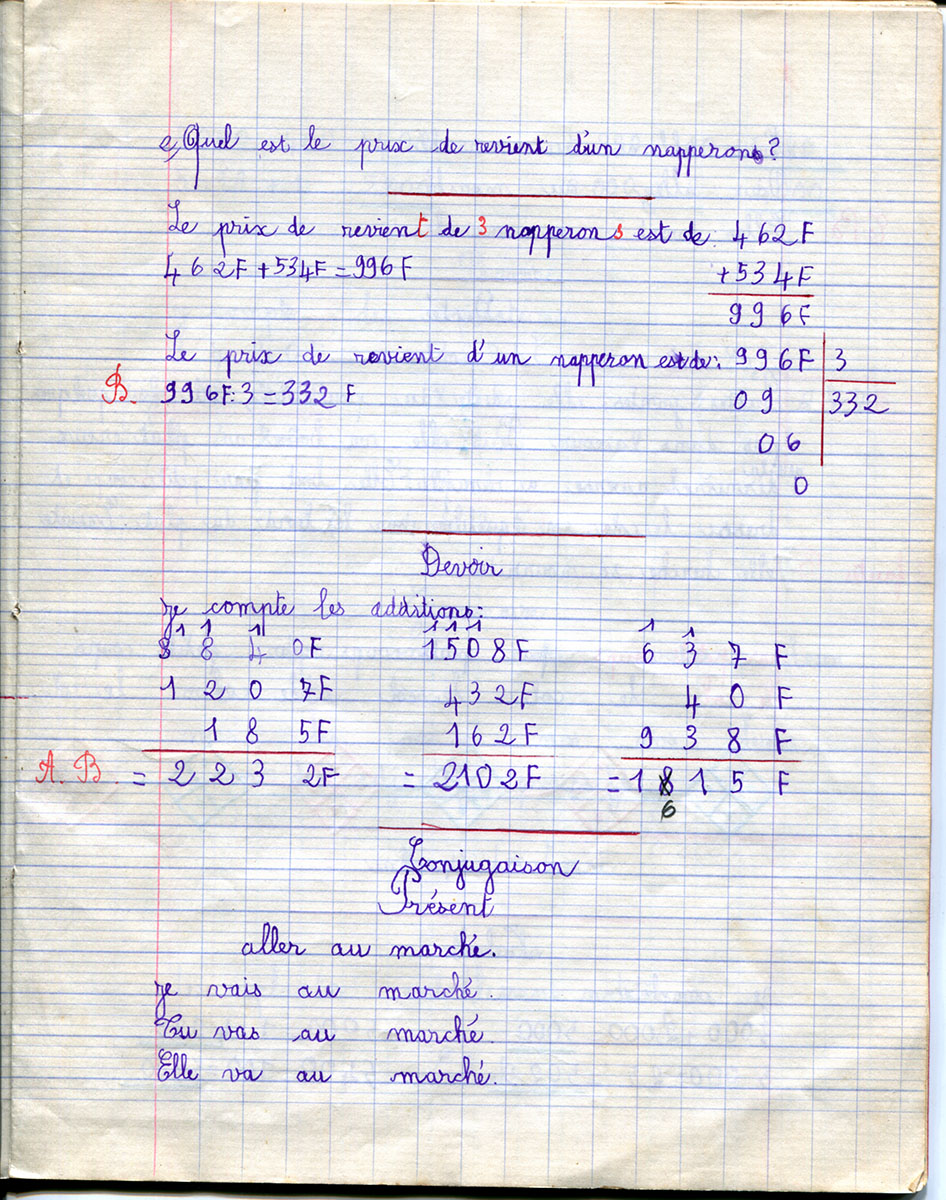 2) Quel est le prix de revient d'un napperon?
Le prix de revient de 3 napperons est de: 462F
462F + 534F = 996F +534F
996F
Le prix de revient d'un napperon est de: 996F 3
B. 996F : 3 = 332 F 09 332
06
0
Devoir
Je compte les additions:
1 1 1 1 1 1 1 1
8 4 0F 1508F 6 3 7 F
1 2 0 7F 432F 4 0 F
1 8 5F 162F 9 3 8 F
A. B. = 2 2 3 2F = 2102F = 1 8 1 5 F
6
Conjugaison
Présent
aller au marché.
Je vais au marché.
Tu vas au marché.
Elle va au marché.